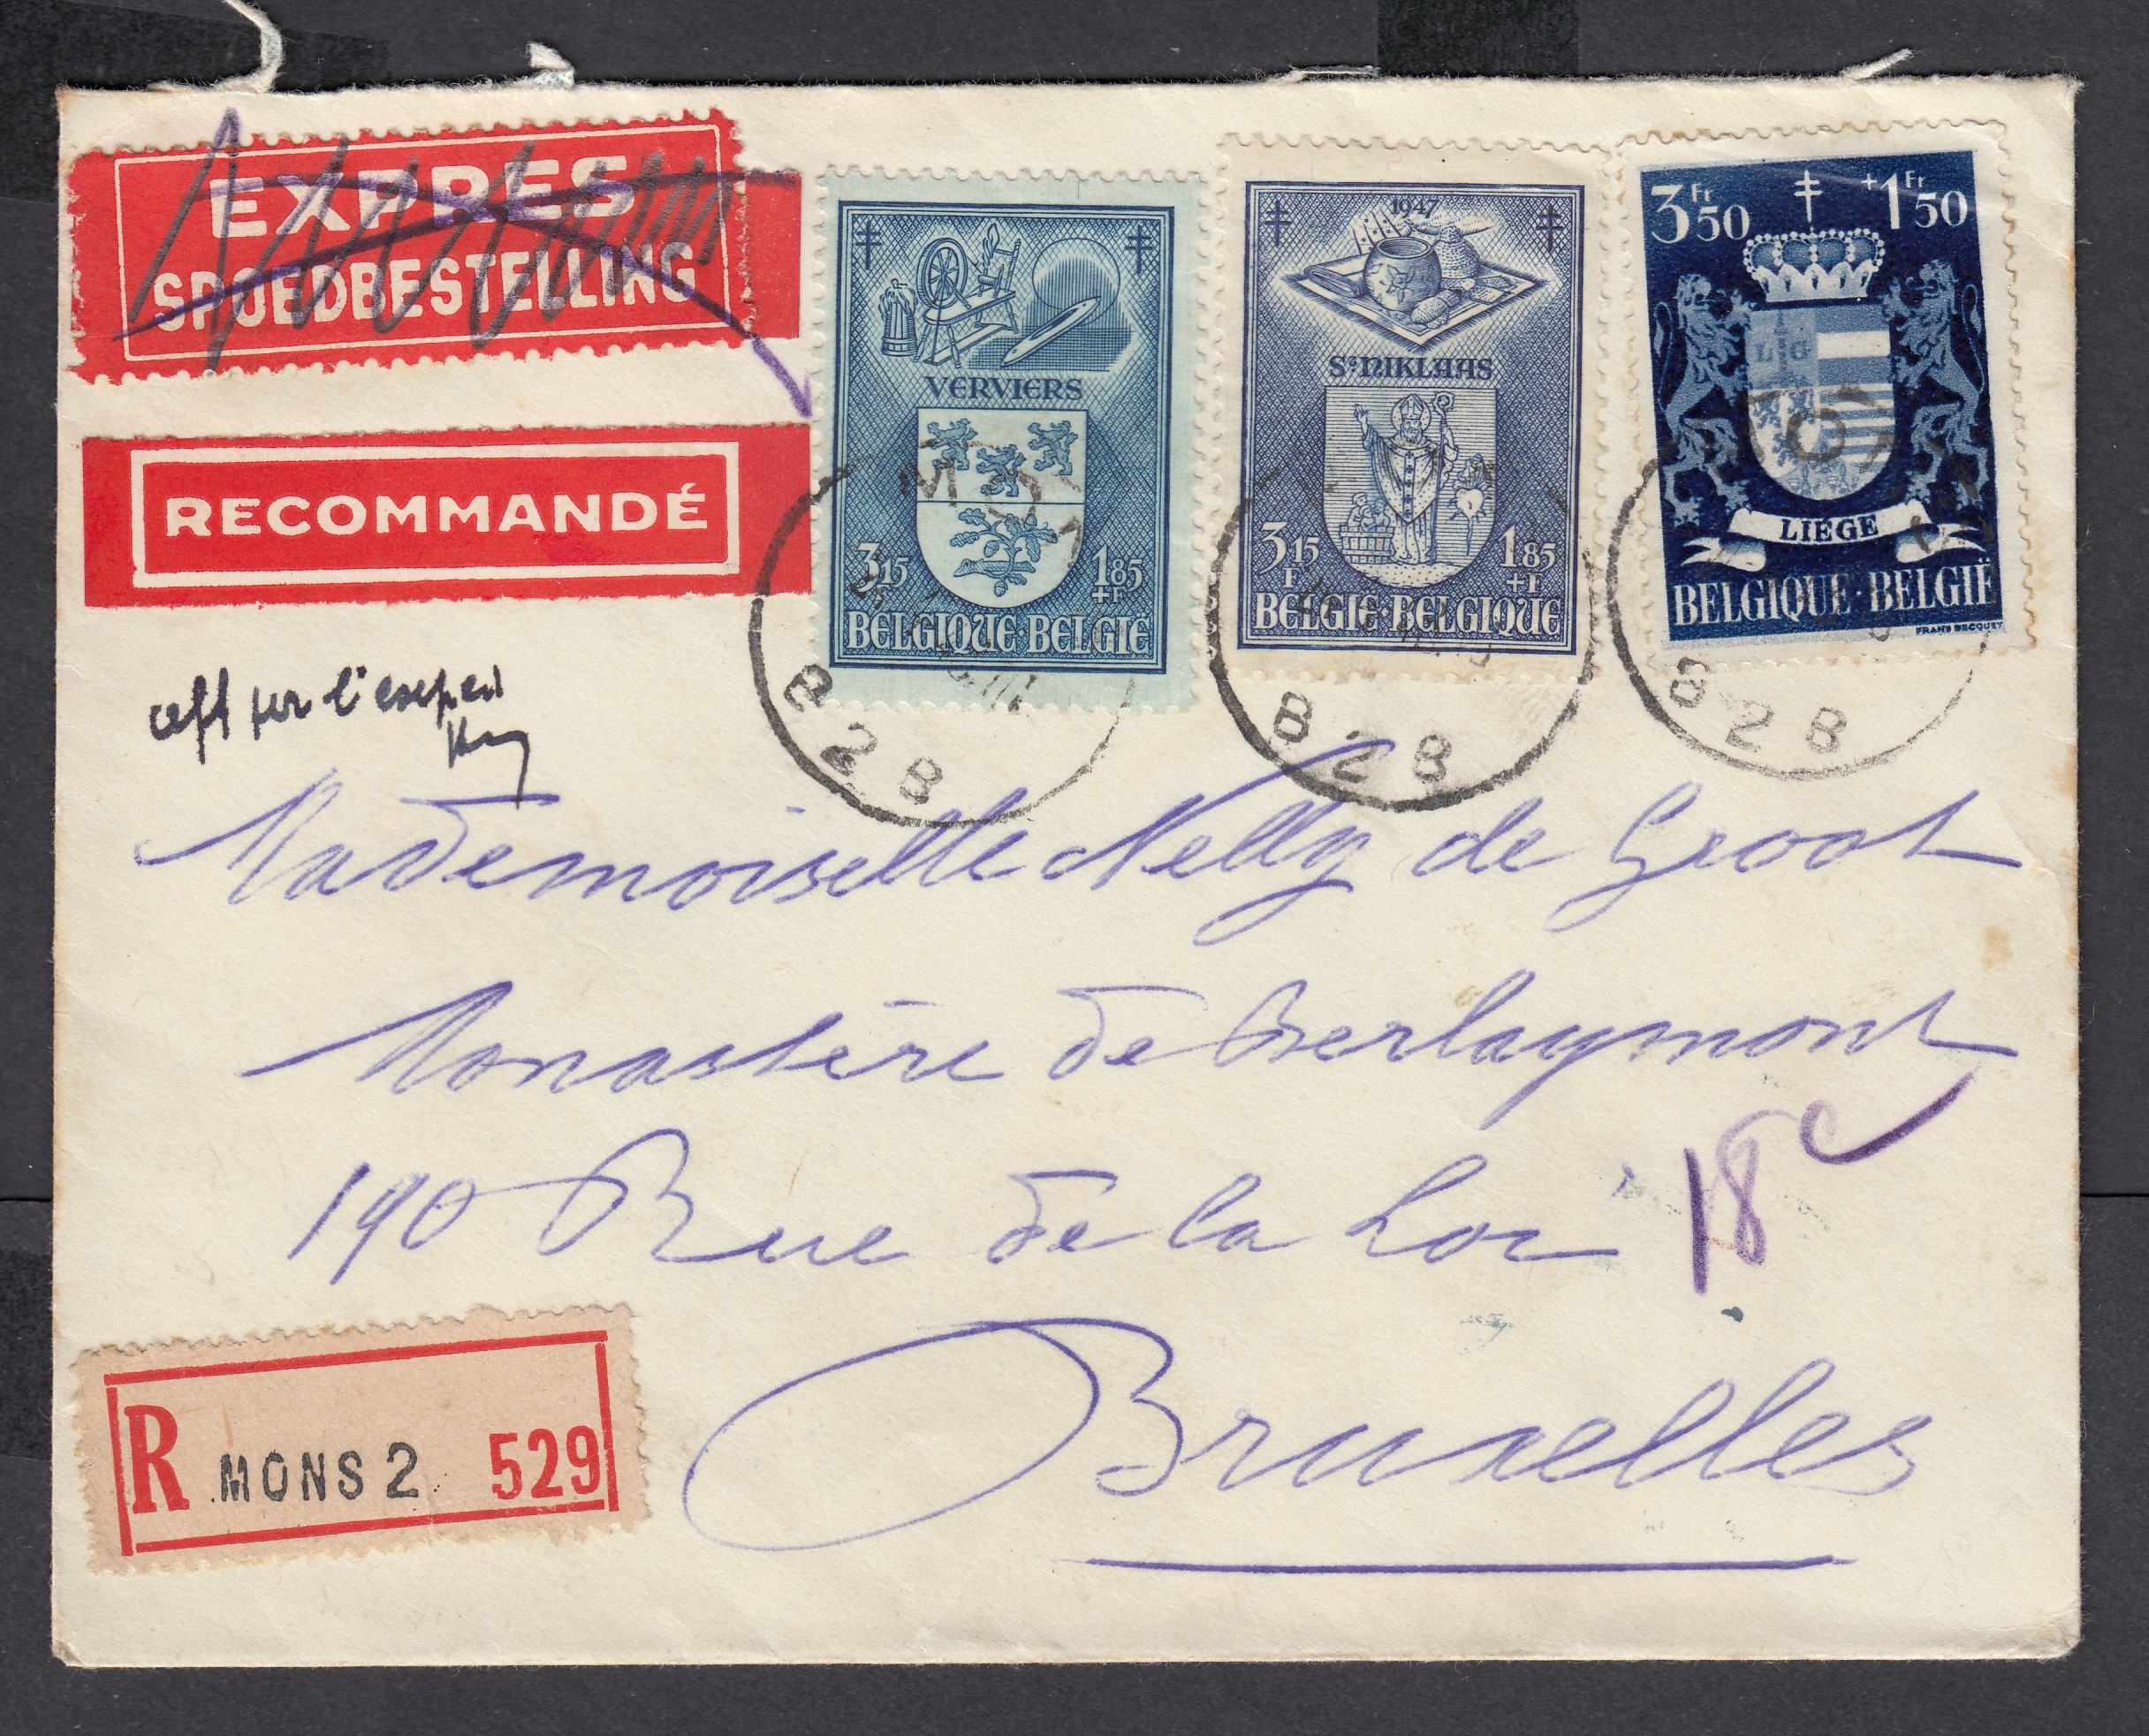 EXPRES
SPOEDBESTELLING
RECOMMANDÉ
VERVIERS
3F15 1F85
+
BELGIQUE·BELGIE
1947
St NIKLAAS
3F15 1F85
+
BELGIE·BELGIQUE
3Fr50 +1Fr50
LIEGE
BELGIQUE·BELGIË
FRANS BECQUET
MON
B2B
B2B
B2B
aff par l'exped
Mademoiselle Nelly de Groot
Monastère de Berlaymont
190 Rue de la Loi
18 c
Bruxelles
R MONS 2 529